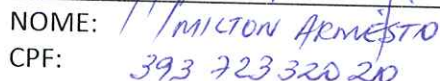 NOME: MILTON ARMESTO
CPF: 393 723 320 20